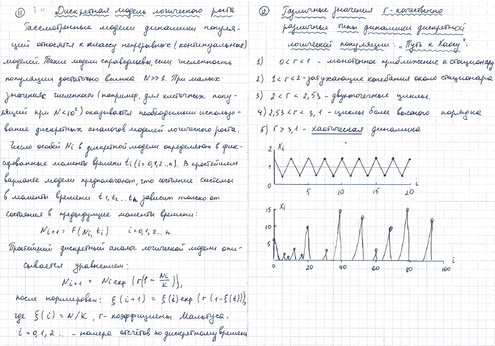 11) Дискретная модель логического роста
Рассмотренные модели динамики популя-
ций относятся к классу непрерывных (континуальных)
моделей. Такие модели справедливы, если численность
популяции достаточно велика N>>1. При малых
значениях численности (например, для клеточных попу-
ляций при N<10²) оказывается необходимым использо-
вание дискретных аналогов моделей логического роста.
Число особей Ni в дискретной модели определяют в фик-
сированные моменты времени ti (i=0,1,2..n). В простейшем
варианте модели предполагают, что состояние системы
в моменты времени t1, t2.. tn зависит только от
состояния в предыдущие моменты времени:
Ni+1 = F(Ni, ti) i=0,1,2.. n
Простейший дискретный аналог логической модели опи-
сывается уравнением:
Ni+1 = Ni exp {r(1 - Ni/K)},
после нормировки: ξ(i+1) = ξ(i) exp (r(1-ξ(i))),
где ξ(i) = N/K, r-коэффициент Мальтуса.
i=0,1,2... - номера отсчётов по дискретному времени
12) Различные значения r-качественно
различные типы динамики дискретной
логической популяции. "Путь к хаосу".
1) 0<r<1 - монотонное приближение к стационару
2) 1<r<2-затухающие колебания около стационара
3) 2<r<2,53 - двухточечные циклы.
4) 2,53<r<3,1 - циклы более высокого порядка
5) r>3,1 - хаотическая динамика
Xi
2
1
0
5 10 15 20 i
Xi
15
10
5
0 20 40 60 80 100
i